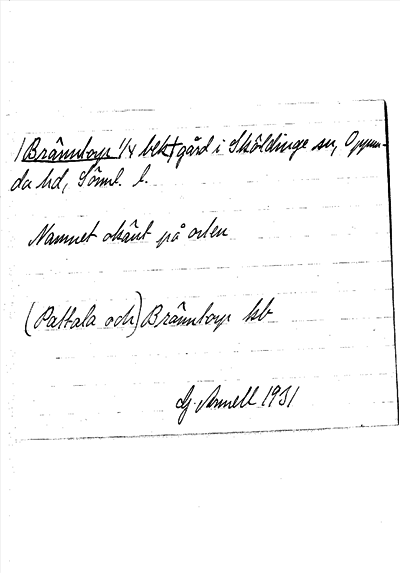 1 Bränntorp 1/4 bekt gård i Sköldinge sn, Oppun-
da hd, Söml. l.
Namnet okänt på orten
(Pattala och) Bränntorp kb
G. Annell 1931